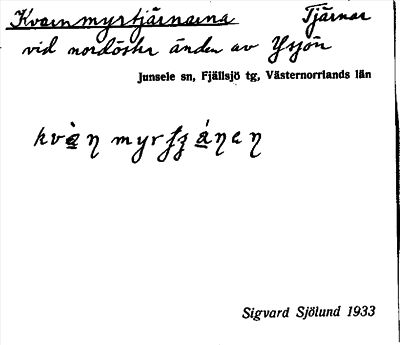 Kvarnmyrtjärnarna Tjärnar
vid nordöstra änden av Ysjön
Junsele sn, Fjällsjö tg, Västernorrlands län
Sigvard Sjölund 1933